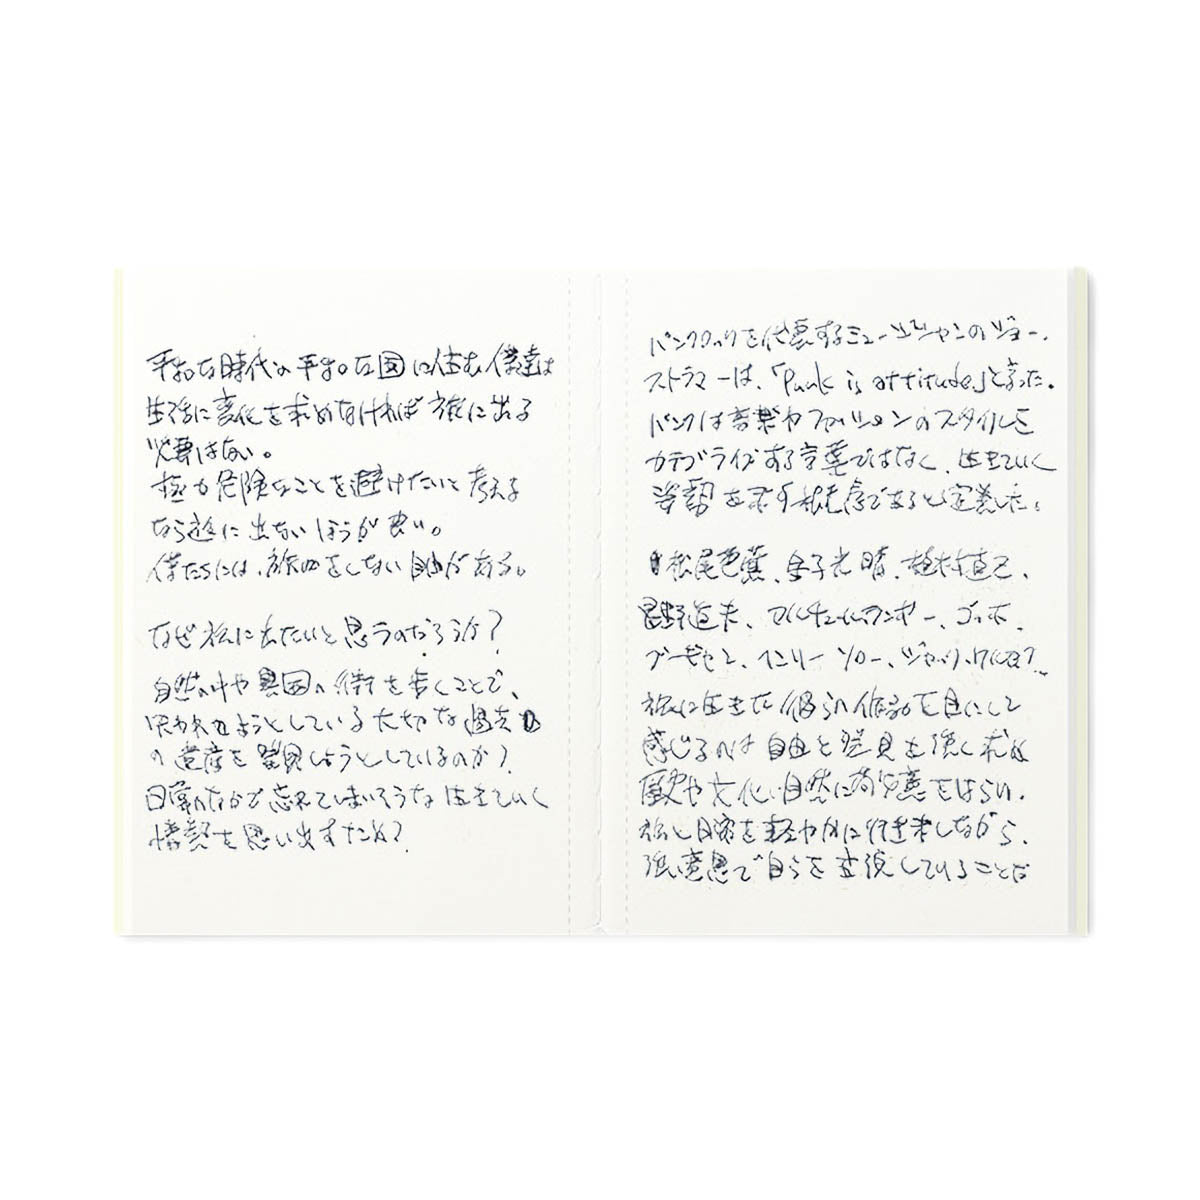 平和な時代の平和な国に住む僕達は
生活に変化を求めなければ旅に出る
必要はない。
極力危険なことを避けたいと考える
なら旅に出ないほうが良い。
僕たちには、旅をしない自由がある。
なぜ旅に出たいと思うのだろうか?
自然の中や異国の街を歩くことで、
失われようとしている大切な過去
の遺産を発見しようとしているのか?
日常のなかで忘れてしまいそうな生きていく
情熱を思い出すため?
パンクロックを代表するミュージシャンのジョー・
ストラマーは、「Punk is attitude」と言った。
パンクは音楽やファッションのスタイルを
カテゴライズする言葉ではなく、生きていく
姿勢を示す根源であると定義した。
松尾芭蕉、金子光晴、植村直己、
星野道夫、アルチュール・ランボー、ゴッホ、
ゴーギャン、ヘンリー・ソロー、ジャック・ケルアック…
旅に生きた彼らの作品を目にして
感じるのは自由と発見を強く求め
歴史や文化、自然に敬意をはらい、
旅と日常を軽やかに行き来しながら、
強い意思で自らを表現していることだ